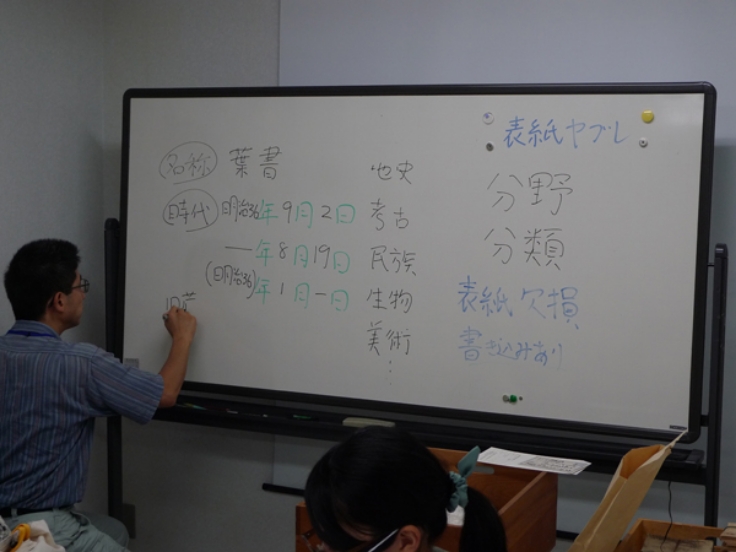 名称 葉書
時代 明治36年9月2日
―年8月19日
(明治36)年1月一日
地史
考古
民族
生物
美術
⋮
表紙ヤブレ
分野
分類
表紙欠損
書き込みあり